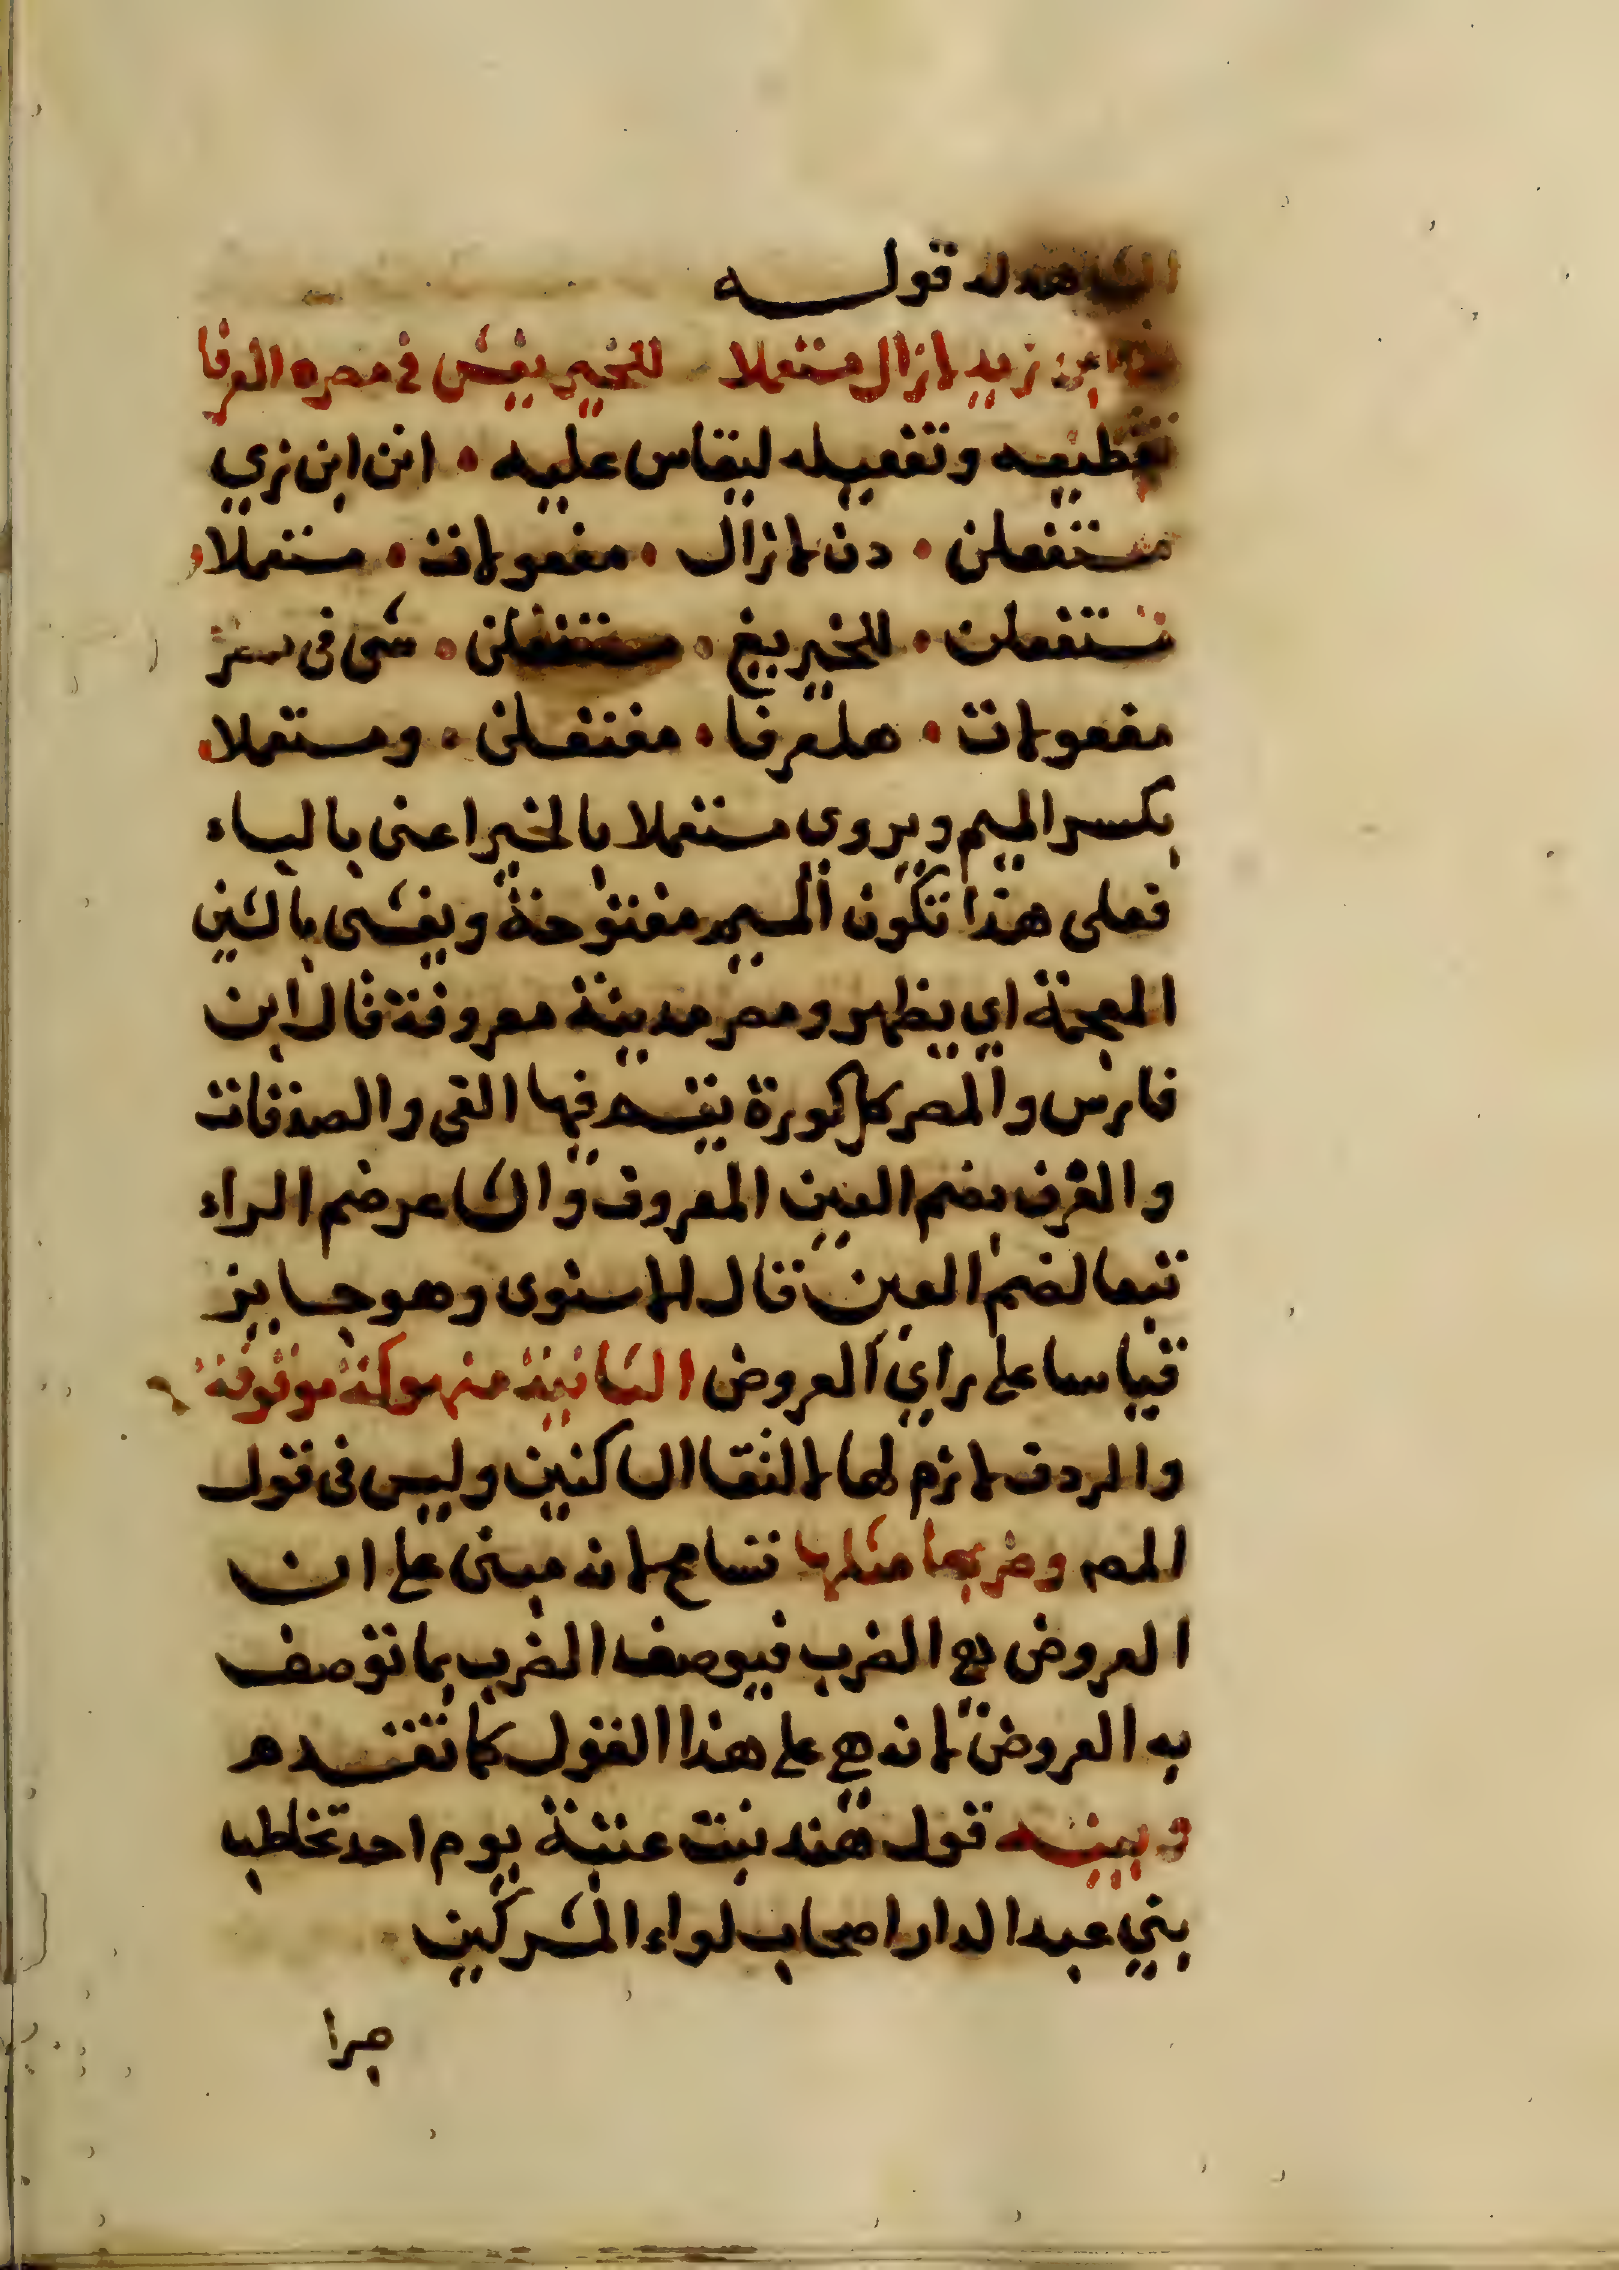 الشاهد له قولـــه
ان ابن زيد لازال مستعملا للخير يفشى في مصره العرفا
تقطيعه وتفعيله ليقاس عليه • انن ابن زي
مستفعلن • دن لازال • مفعولات • مستعملا •
مستفعلن • للخير يف • مستفعلن • شى فى مصر
مفعولات • هلعرفا • مفتعلن • ومستعملا •
بكسر الميم ويروى مستعملا بالخير اعنى بالباء
فعلى هذا تكون الميم مفتوحة ويفشى بالشين
المعجمة اي يظهر ومصر مدينة معروفة قال ابن
فارس والمصر كل كورة يقسم فيها الفي والصدقات
والعرف بضم العين المعروف والشاعر ضم الراء
تبعا لضم العين قال الاسنوى وهو جايز
قياسا على راي العروض الثانية منهوكة موقوفة
والردف لازم لها لالتقا الساكنين وليس فى قول
المص وضربها مثلها تسامح لانه مبنى على ان
العروض هي الضرب فيوصف الضرب بما توصف
به العروض لانه هي على هذا القول كما تقدم
وبيته قول هند بنت عتبة يوم احد تخاطب
بني عبد الدار اصحاب لواء المشركين